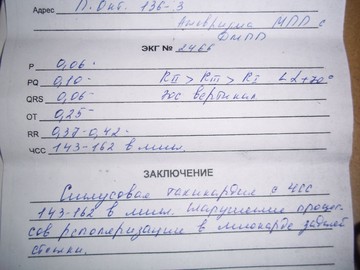 Адрес П. Окт. 136-3
Аневризма МПП с
ФМПП
ЭКГ № 2466
P 0,06
PQ 0,10 RII > RIII > RI ∠α+70°
QRS 0,06 Эос вертикал
OT 0,25
RR 0,37-0,42
ЧСС 143-162 в мин.
ЗАКЛЮЧЕНИЕ
Синусовая тахикардия с ЧСС
143-162 в мин. Нарушение процес-
сов реполяризации в миокарде задней
стенки.